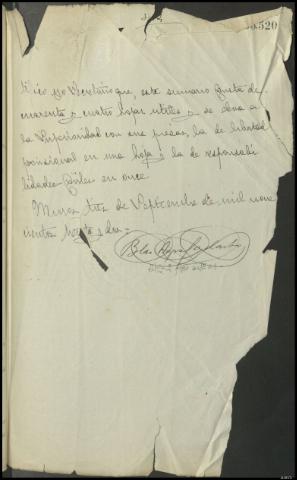 Digo yo Secretario que, este sumario consta de
cuarenta y cuatro hojas utiles y se eleva a
la Superioridad con sus piezas, la de libertad
provisional en una hoja y la de responsabi
lidades civiles en once.
Minas tres de Septiembre de mil nove
cientos